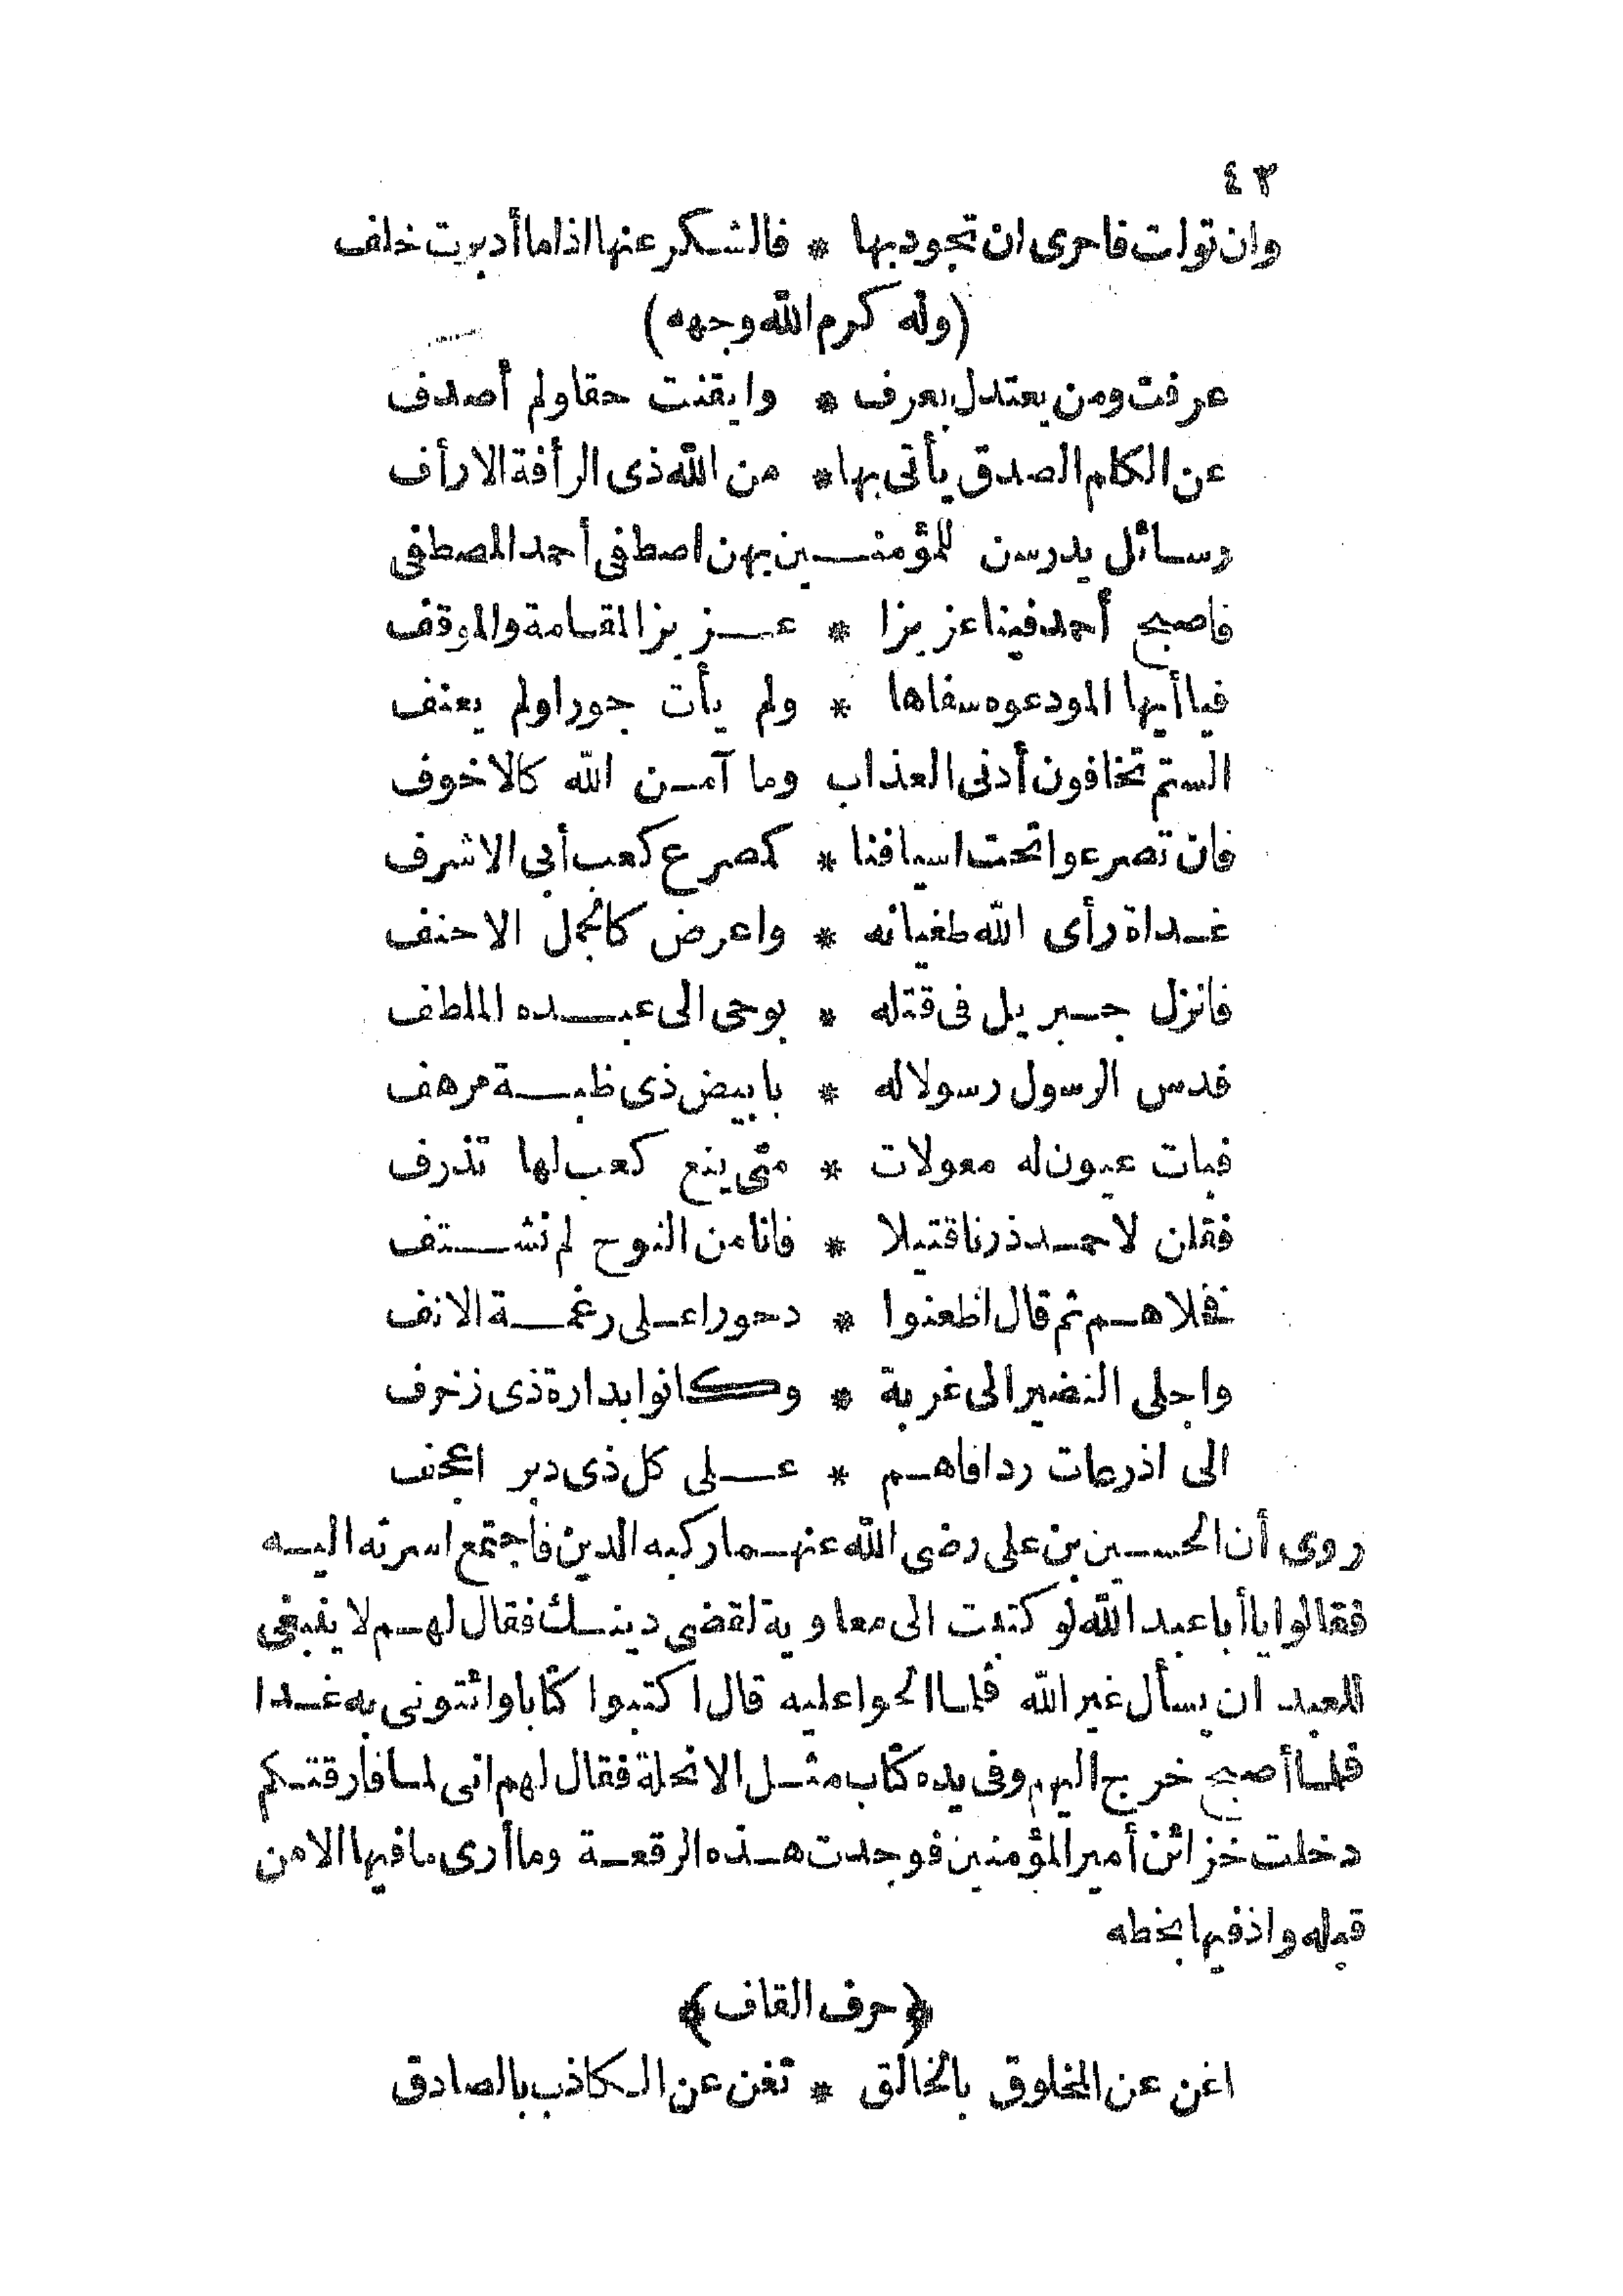 ٤٣
وان تولت فاحرى ان تجود بها * فالشكر عنها اذا ما أدبرت خلف
(وله كرم الله وجهه)
عرفت ومن يعتدل يعرف * وايقنت حقا ولم أصدف
عن الكلم الصدق يأتى بها * من الله ذى الرأفة الارأف
رسائل يدرسن للمؤمنين بهن اصطفى أحمد المصطفى
فاصبح أحمد فينا عزيزا * عزيز المقامة والموقف
فيا أيها المودعوه سفاها * ولم يأت جورا ولم يعنف
الستم تخافون أدنى العذاب وما آمن الله كالاخوف
فان تصرعوا تحت اسيافنا * كمصرع كعب أبى الاشرف
غداة رأى الله طغيانه * واعرض كالجمل الاحنف
فانزل جبريل فى قتله * بوحى الى عبده الملطف
فدس الرسول رسولا له * بابيض ذى ظبة مرهف
فبات عيون له معولات * متى ينع كعب لها تذرف
فقلن لاحمد ذرنا قتيلا * فانا من النوح لم نشتف
فخلاهم ثم قال اظعنوا * دحورا على رغمة الانف
واجلى النضير الى غربة * وكانوا بدارة ذى زخرف
الى اذرعات ردافاهم * على كل ذى دبر اعجف
روى أن الحسين بن على رضى الله عنهما ركبه الدين فاجتمع اسرته اليه
فقالوا يا أبا عبد الله لو كتبت الى معاوية لقضى دينك فقال لهم لا ينبغى
للعبد ان يسأل غير الله فلما الحوا عليه قال اكتبوا كتابا وائتونى به غدا
فلما أصبح خرج اليهم وفى يده كتاب مثل الانملة فقال لهم انى لما فارقتكم
دخلت خزائن أمير المؤمنين فوجدت هذه الرقعة وما أرى ما فيها الا من
قبله واذ فيها بخطه
﴿حرف القاف﴾
اغن عن المخلوق بالخالق * تغن عن الكاذب بالصادق